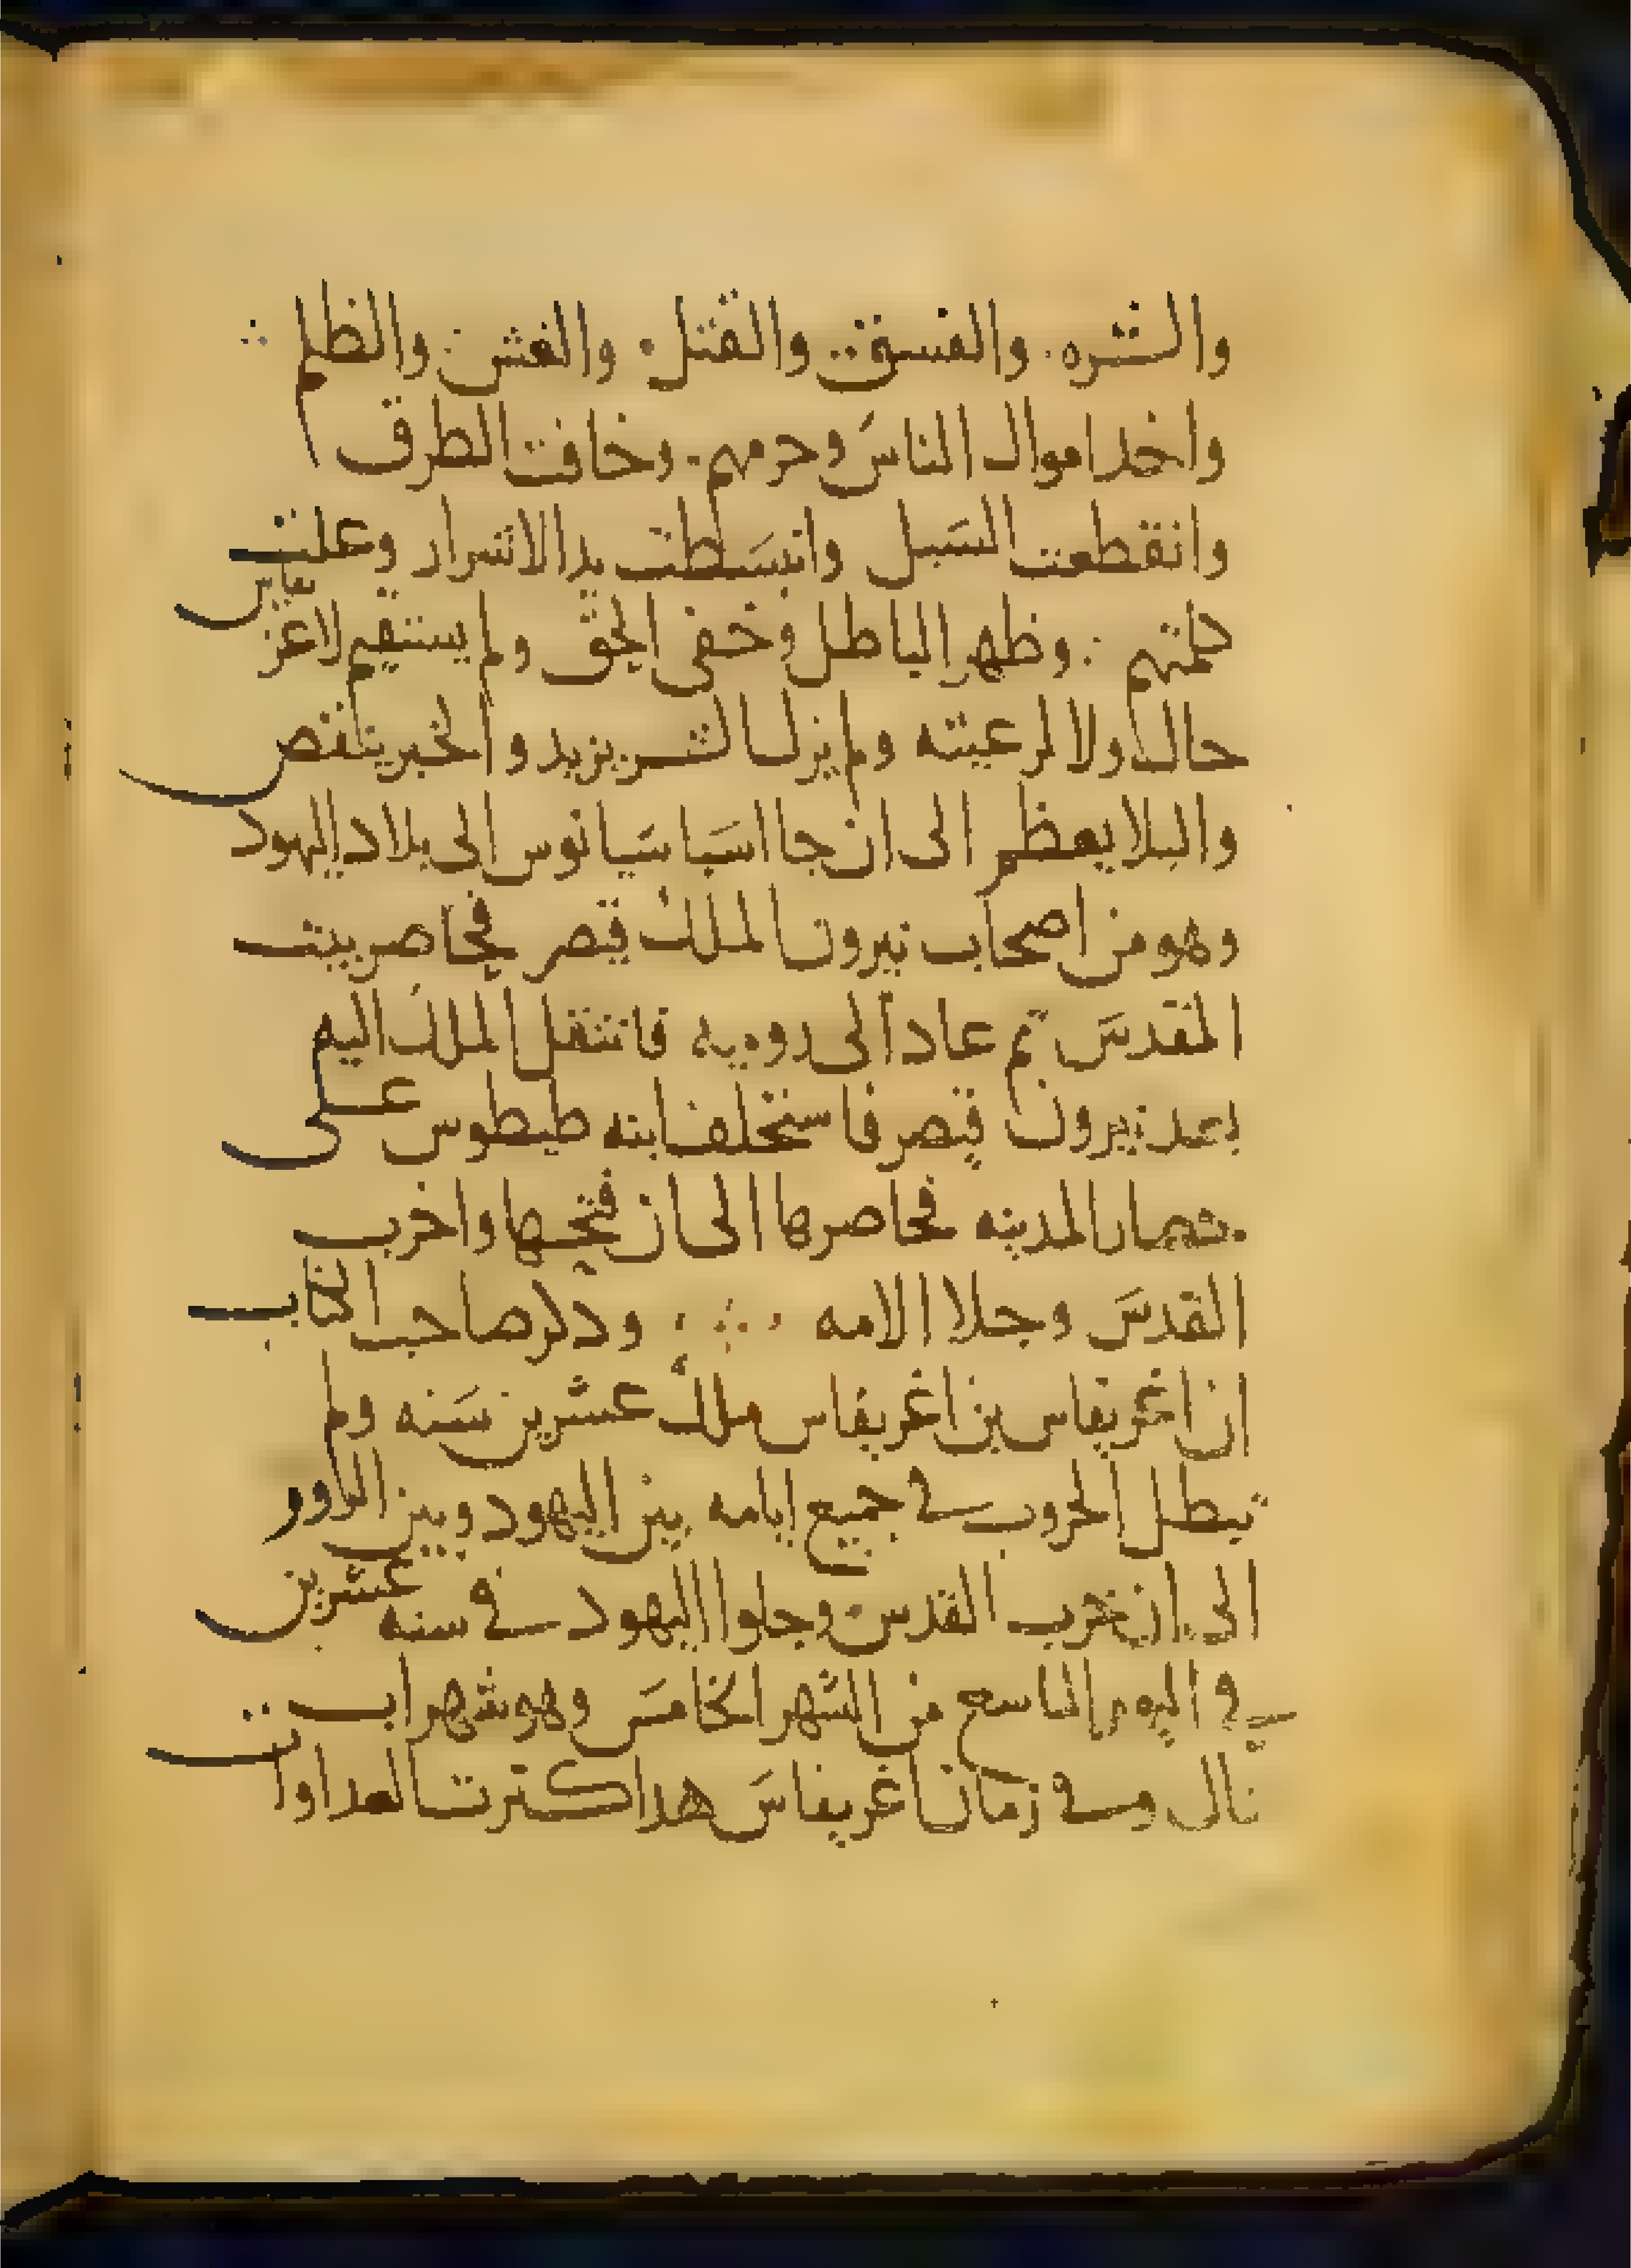 والشره. والفسق.. والقتل. والغش. والظلم ..
واخد اموال الناس وحرمهم. وخافت الطرق
وانقطعت السبل وانبسطت يد الاشرار وعلت
كلمتهم : وظهر الباطل وخفى الحق ولم يستقيم لاغر
حال ولا لرعيته ولم يزل الشر يزيد والخير يتنقص
والبلا يعظم الى ان جا اسباسيانوس الى بلاد اليهود
وهو من اصحاب نيرون الملك قيصر فحاصر بيت
المقدس ثم عاد الى روميه فانتقل الملك اليه
بعد نيرون قيصر فاستخلف ابنه طيطوس على
حصار المدينه فحاصرها الى ان فتحها واخرب
القدس وجلا الامه . ود‍كر صاحب الكتاب
ان اغريفاس بن اغريفاس ملك عشرين سنه ولم
تبطل الحروب في جميع ايامه بين اليهود وبين
الى ان خرب القدس وجلوا اليهود في سنه عشرين
في اليوم التاسع من الشهر الخامس وهو شهر اب ..
قال وفي زمان اغريفاس هدا كترت العداوات